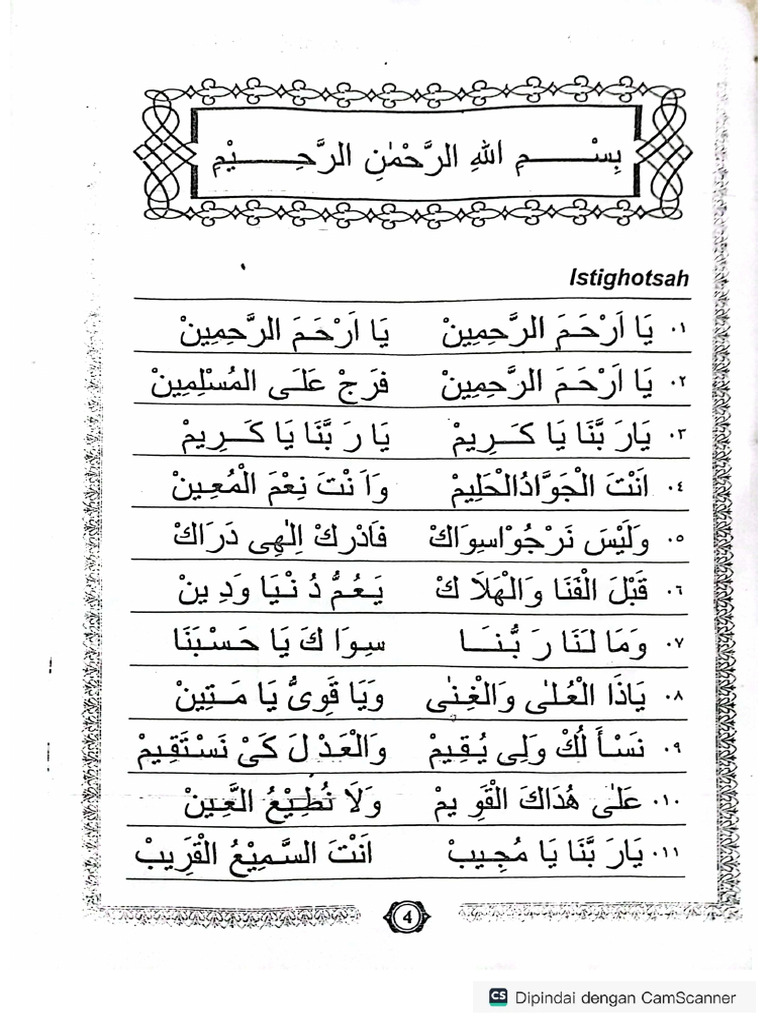 بِسْــــمِ اللهِ الرَّحْمٰنِ الرَّحِــــيْمِ
Istighotsah
٠١ يَا اَرْحَمَ الرَّحِمِينْ يَا اَرْحَمَ الرَّحِمِينْ
٠٢ يَا اَرْحَمَ الرَّحِمِينْ فَرَجْ عَلَى المُسْلِمِينْ
٠٣ يَارَ بَّنَا يَا كَـرِيمْ يَا رَ بَّنَا يَا كَـرِيمْ
٠٤ اَنْتَ الْجَوَّادُالْحَلِيمْ وَاَ نْتَ نِعْمَ الْمُعِينْ
٠٥ وَلَيْسَ نَرْجُوْاسِوَاكْ فَاَدْرِكْ اِلٰهِى دَرَاكْ
٠٦ قَبْلَ الْفَنَا وَالْهَلَا كْ يَعُمُّ دُ نْيَا وَدِ ينْ
٠٧ وَمَا لَنَا رَ بُّنَــا سِوَا كَ يَا حَسْبَنَا
٠٨ يَاذَا الْعُلٰى وَالْغِنٰى وَيَا قَوِىُّ يَا مَـتِينْ
٠٩ نَسْأَ لُكْ وَلِى يُقِيمْ وَالْعَدْ لَ كَىْ نَسْتَقِيمْ
٠١٠ عَلٰى هُدَاكَ الْقَوِ يمْ وَلَا نُطِيْعُ الَّعِينْ
٠١١ يَارَ بَّنَا يَا مُجِيبْ اَنْتَ السَّمِيْعُ الْقَرِيبْ
4
CS Dipindai dengan CamScanner